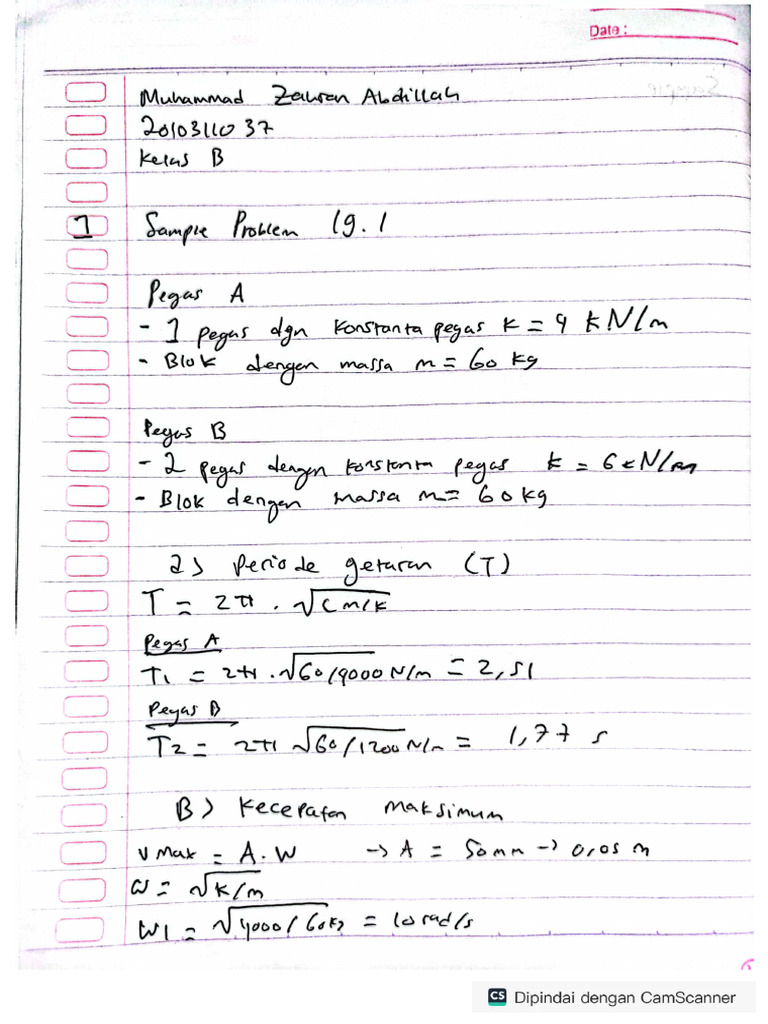 Date :
Muhammad Zahran Abdillah
2010311037
Kelas B
1 Sample Problem 19.1
Pegas A
- 1 pegas dgn konstanta pegas k = 4 kN/m
- Blok dengan massa m = 60 kg
Pegas B
- 2 pegas dengan konstanta pegas k = 6 kN/m
- Blok dengan massa m = 60 kg
a) Periode getaran (T)
T = 2π . √(m/k
Pegas A
T1 = 2π . √60/4000 N/m = 2,51
Pegas B
T2 = 2π √60/1200 N/m = 1,77 s
B) Kecepatan maksimum
V max = A . W -> A = 50 mm -> 0,05 m
ω = √k/m
W1 = √4000/60kg = 10 rad/s
CS Dipindai dengan CamScanner